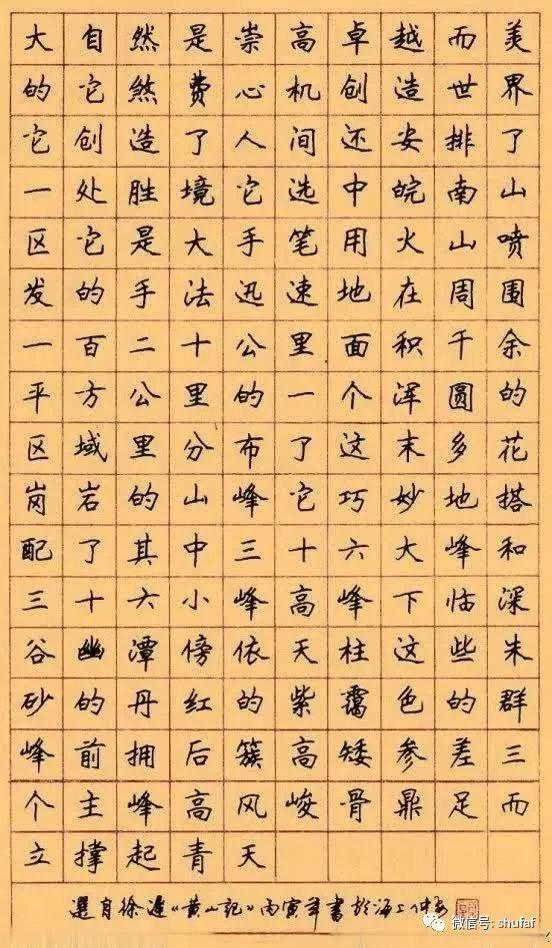 大自然是崇高卓越而美
的它煞费心机创造世界
它创造了人间还安排了
一处胜境它选中皖南山
区它是大手笔用火山喷
发的手法迅速地在周围
一百二十公里面积千余
平方公里的一个浑圆的
区域里分布了这末多花
岗岩的山峰它巧妙地搭
配了其中三十六大峰和
三十六小峰高峰下临深
谷幽潭傍依天柱这些朱
砂的丹红的紫霭色的群
峰前拥后簇高矮参差三
个主峰高风峻骨鼎足而
立撑起青天
選自徐迟《黄山記》丙寅年書於海上
微信号: shufaf